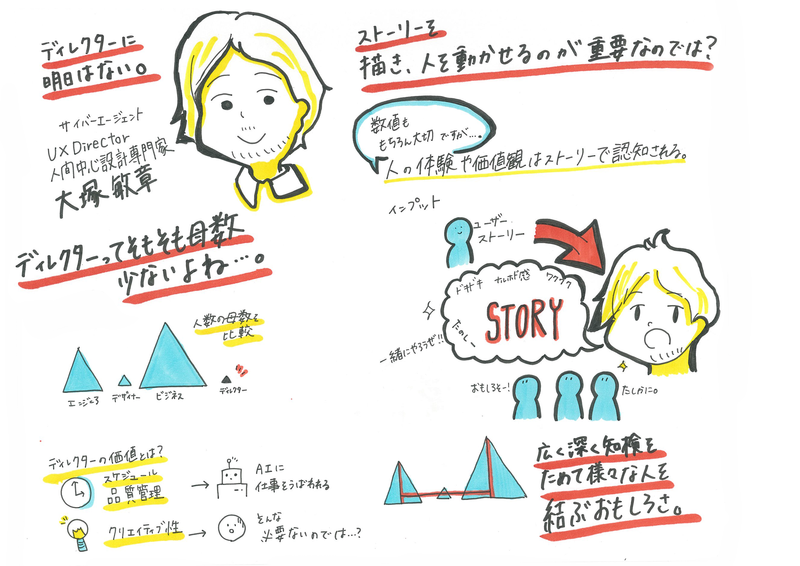 ディレクターに
明日はない。
サイバーエージェント
UX Director
人間中心設計専門家
大塚敏章
ディレクターってそもそも母数
少ないよね…。
人数の母数を
比較
エンジニア
デザイナー
ビジネス
ディレクター
ディレクターの価値とは?
スケジュール
品質管理
AIに
仕事をうばわれる
クリエイティブ性
そんな
必要ないのでは…?
ストーリーを
描き、人を動かせるのが重要なのでは?
数値も
もちろん大切ですが…。
人の体験や価値観はストーリーで認知される。
インプット
ユーザー
ストーリー
ドキドキ
ナルホド感
ワクワク
STORY
たのしー
一緒にやろうぜ!!
おもしろそー!
たしかに。
広く深く知検を
ためて様々な人を
結ぶおもしろさ。